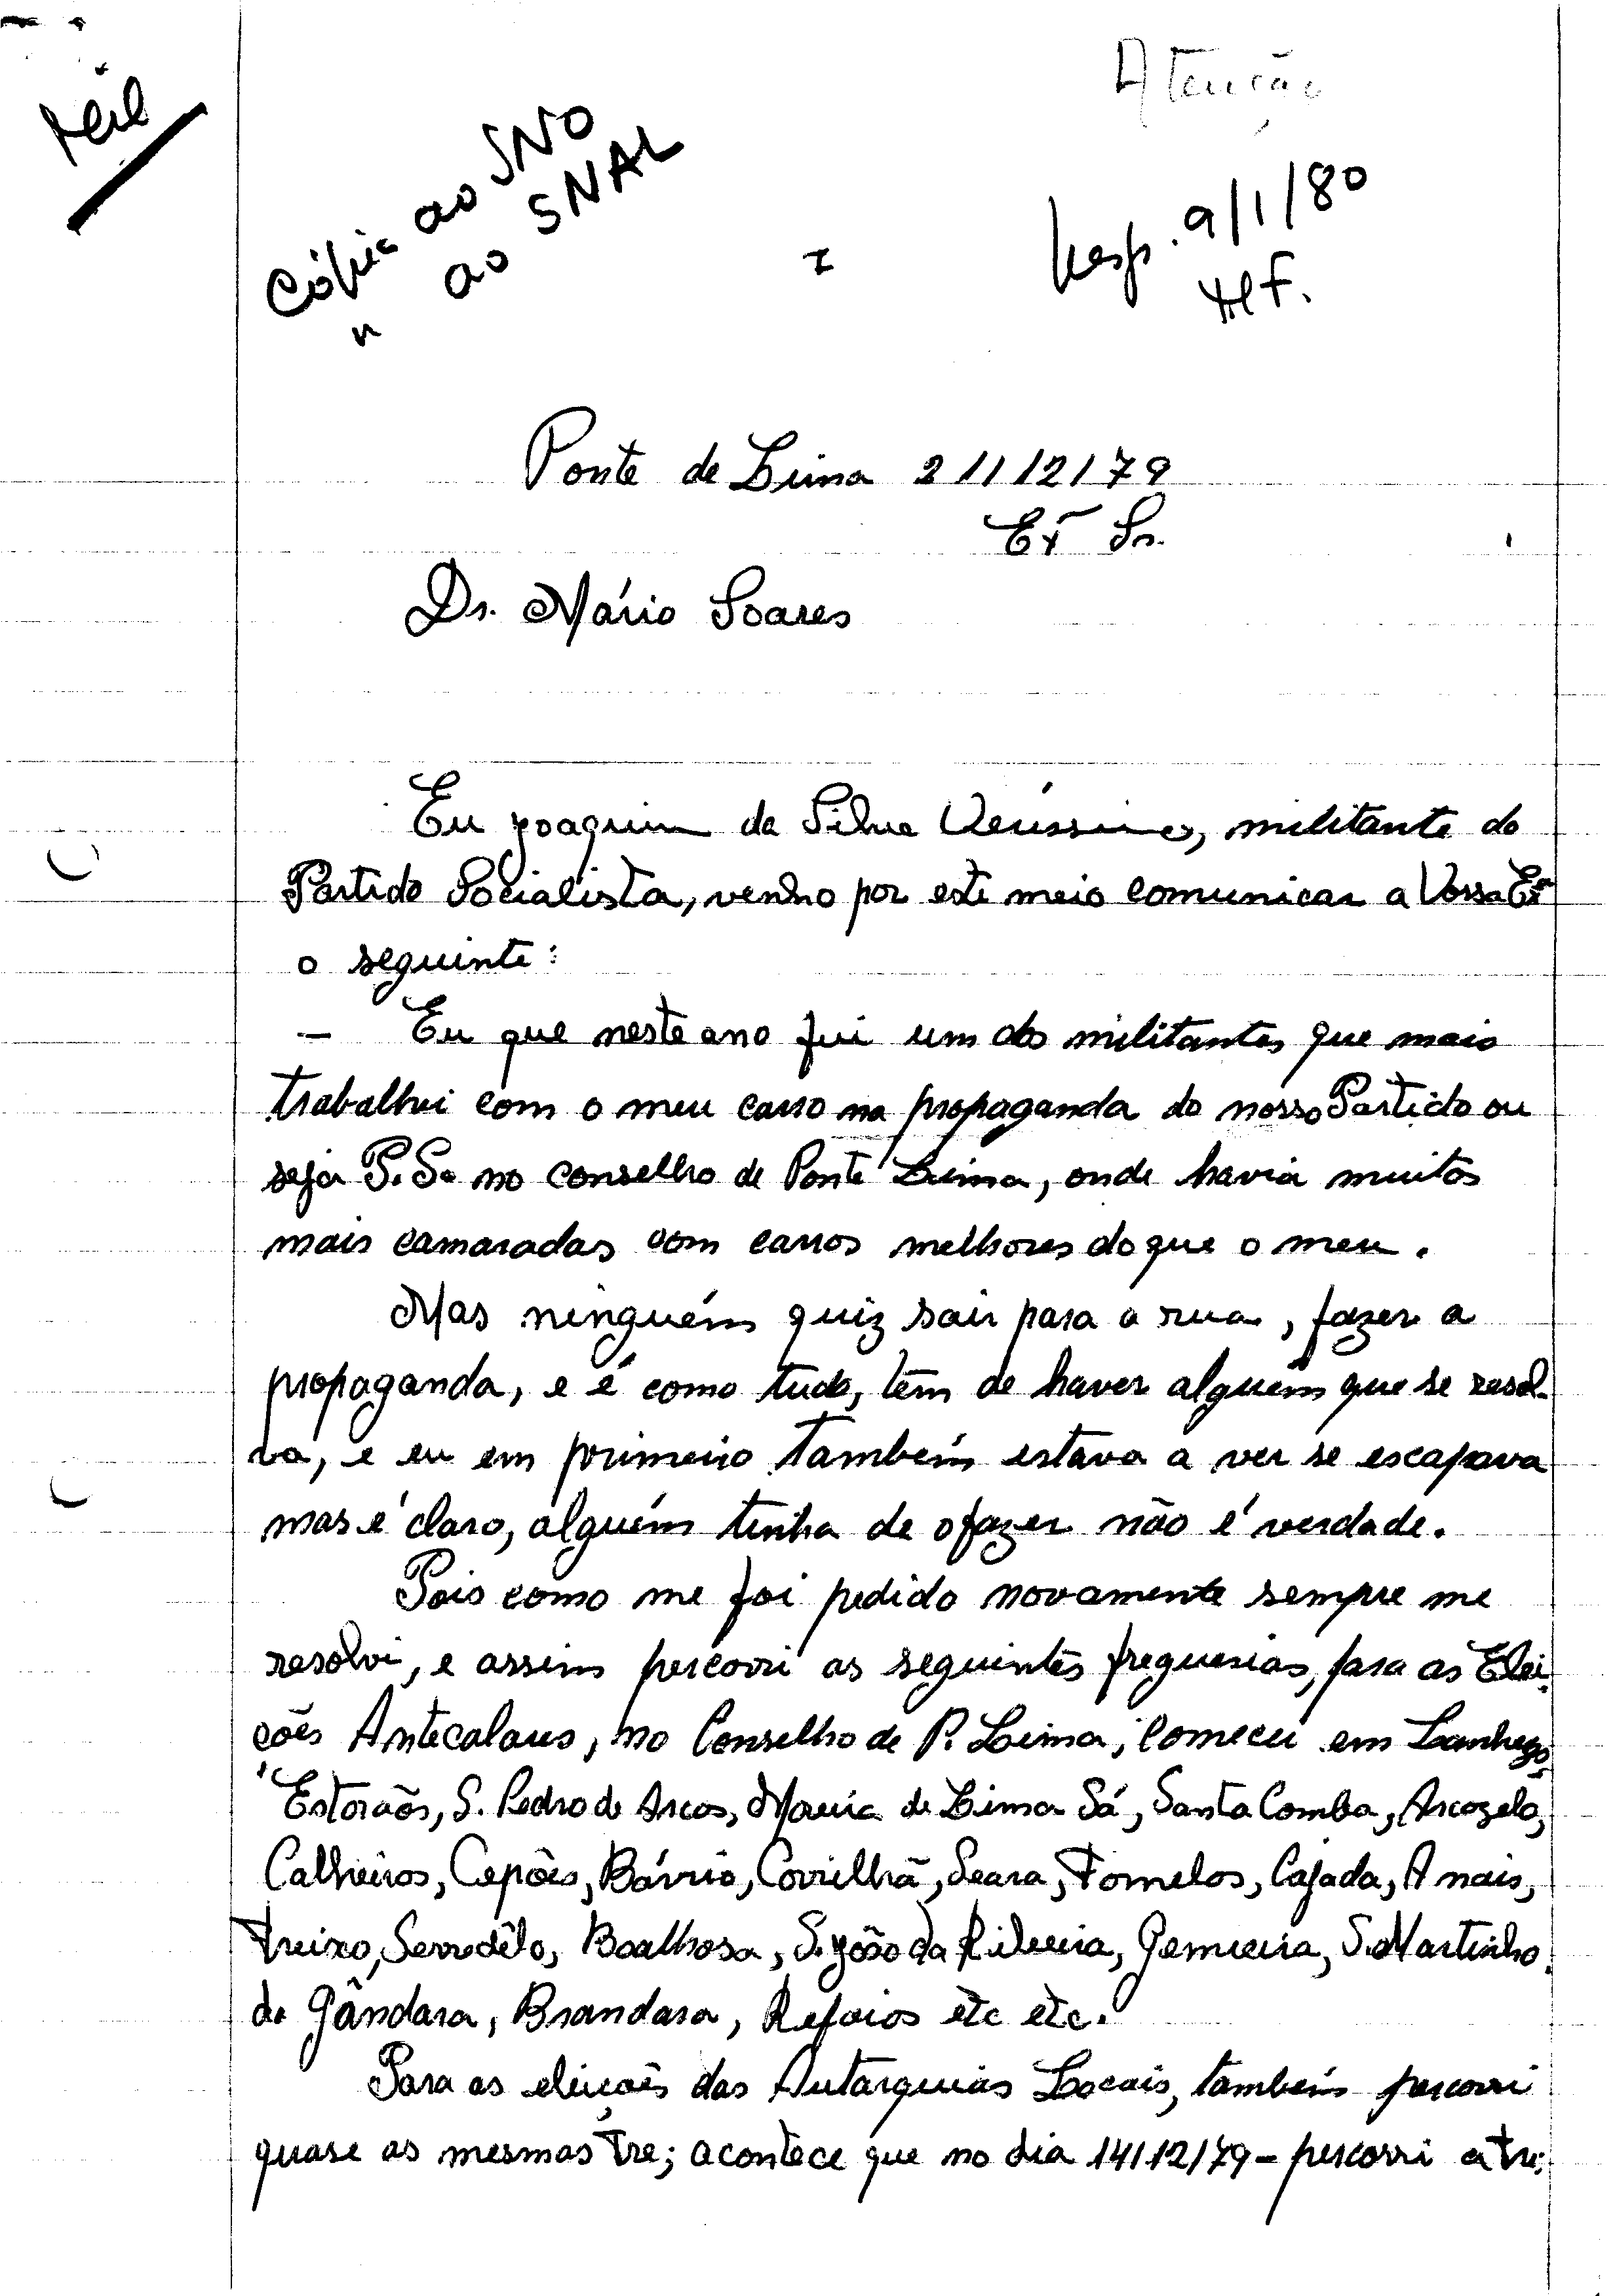 Atenção
Cópia ao SNO
" ao SNAL
I
Resp. 9/1/80
Ponte de Lima 21/12/79
Exº Sr.
Dr. Mário Soares
Eu Joaquim da Silva Veríssimo, militante do
Partido Socialista, venho por este meio comunicar a Vossa Exª
o seguinte:
— Eu que neste ano fui um dos militantes que mais
trabalhei com o meu carro na propaganda do nosso Partido ou
seja P.S. no conselho de Ponte Lima, onde havia muitos
mais camaradas com carros melhores do que o meu.
Mas ninguém quiz sair para a rua, fazer a
propaganda, e é como tudo, têm de haver alguém que se resol-
va, e eu em primeiro também estava a ver se escapava
mas é claro, alguém tinha de o fazer não é verdade.
Pois como me foi pedido novamente sempre me
resolvi, e assim percorri as seguintes freguesias, para as Elei-
ções Antecalares, no Conselho de P. Lima, comecei em
Estorãos, S. Pedro de Arcos, de Lima Sá, Santa Comba, Arcozelo,
Calheiros, Cepões, Bárrio, Corrilhã, Seara, Fornelos, Cajada, Anais,
Freixo, Serdedêlo, Boalhosa, S. João da Ribeira, Gemieira, S. Martinho
da Gândara, Brandara, Refoios etc etc.
Para as eleições das Autarquias Locais, também percorri
quase as mesmas Fre; acontece que no dia 14/12/79 - percorri a Fre: